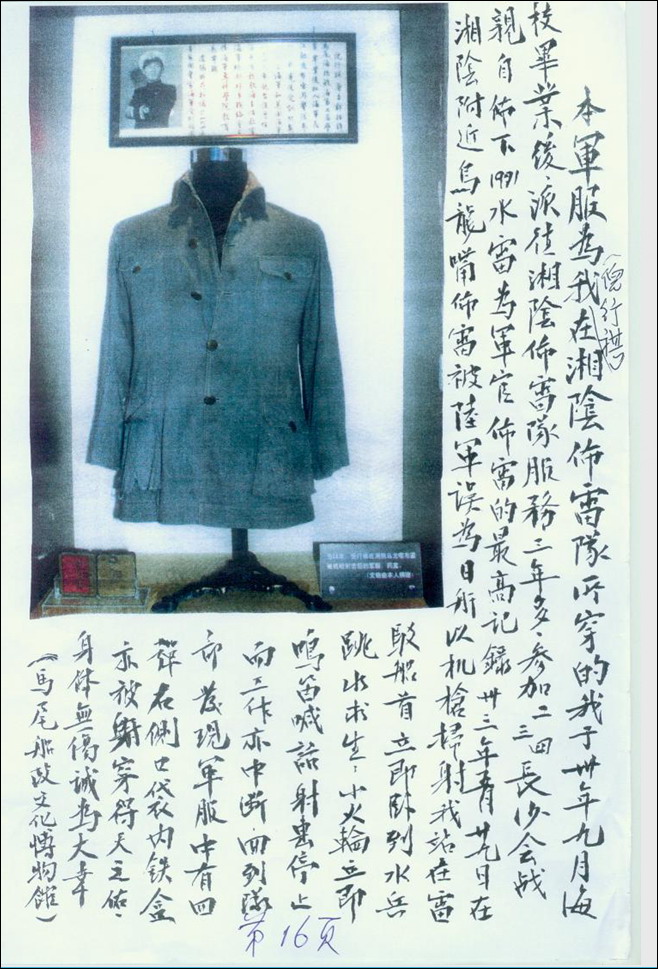 本軍服為我在湘陰佈雷隊所穿的我于卅年九月海
(倪行祺)
校畢業後派往湘陰佈雷隊服務三年多、參加二三四長沙会战
親自佈下1991水雷為軍官佈雷的最高記錄卅三年五月廿九日在
湘陰附近烏龍嘴佈雷被陸軍误為日所以机槍掃射我站在雷
駁船首立即卧到水兵
跳水求生：小火輪立即
鳴笛喊話射擊停止
而工作亦中断回到隊
部发現軍服中有四
彈右側口袋内铁盒
亦被射穿得天之佑、
身体無傷诚為大幸
(馬尾船政文化博物館)
第16页